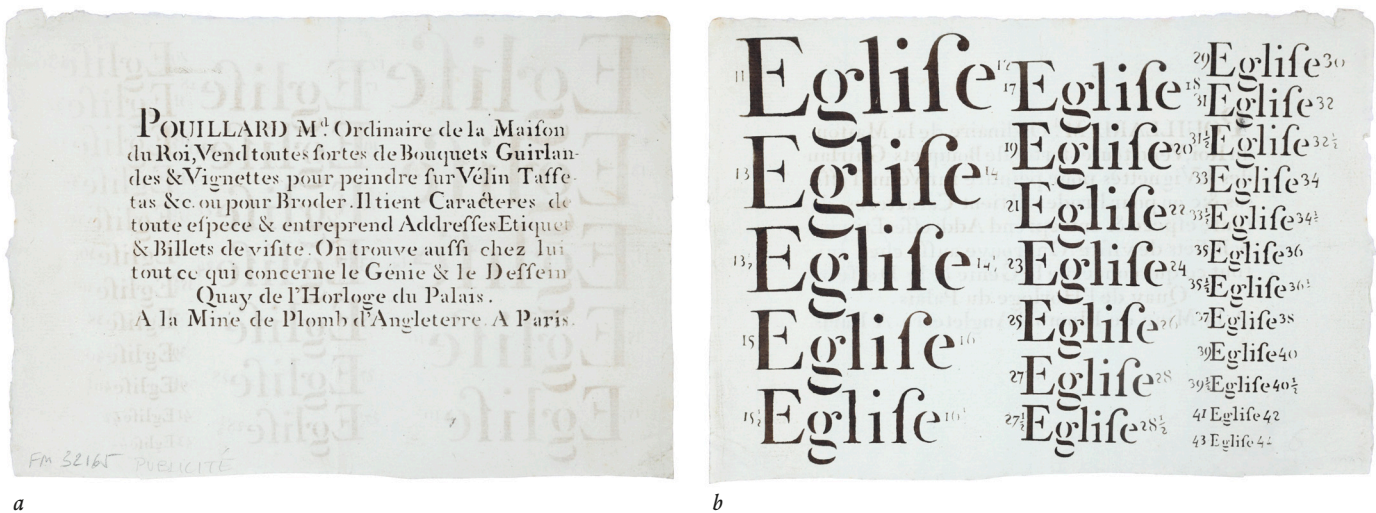 POUILLARD Mᵈ. Ordinaire de la Maiſon
du Roi, Vend toutes ſortes de Bouquets Guirlan-
des & Vignettes pour peindre ſur Vélin Taffe-
tas &c. ou pour Broder. Il tient Caractères de
toute eſpèce & entreprend Addreſſes Etiquet
& Billets de viſite. On trouve auſſi chez lui
tout ce qui concerne le Génie & le Deſſein
Quay de l'Horloge du Palais.
A la Mine de Plomb d'Angleterre. A Paris.
FM 32165 PUBLICITÉ
a
11 Egliſe 12
13 Egliſe 14
13½ Egliſe 14½
15 Egliſe 16
15½ Egliſe 16½
17 Egliſe 18
19 Egliſe 20
21 Egliſe 22
23 Egliſe 24
25 Egliſe 26
27 Egliſe 28
27½ Egliſe 28½
29 Egliſe 30
31 Egliſe 32
31½ Egliſe 32½
33 Egliſe 34
33½ Egliſe 34½
35 Egliſe 36
35½ Egliſe 36½
37 Egliſe 38
39 Egliſe 40
39½ Egliſe 40½
41 Egliſe 42
43 Egliſe 44
b